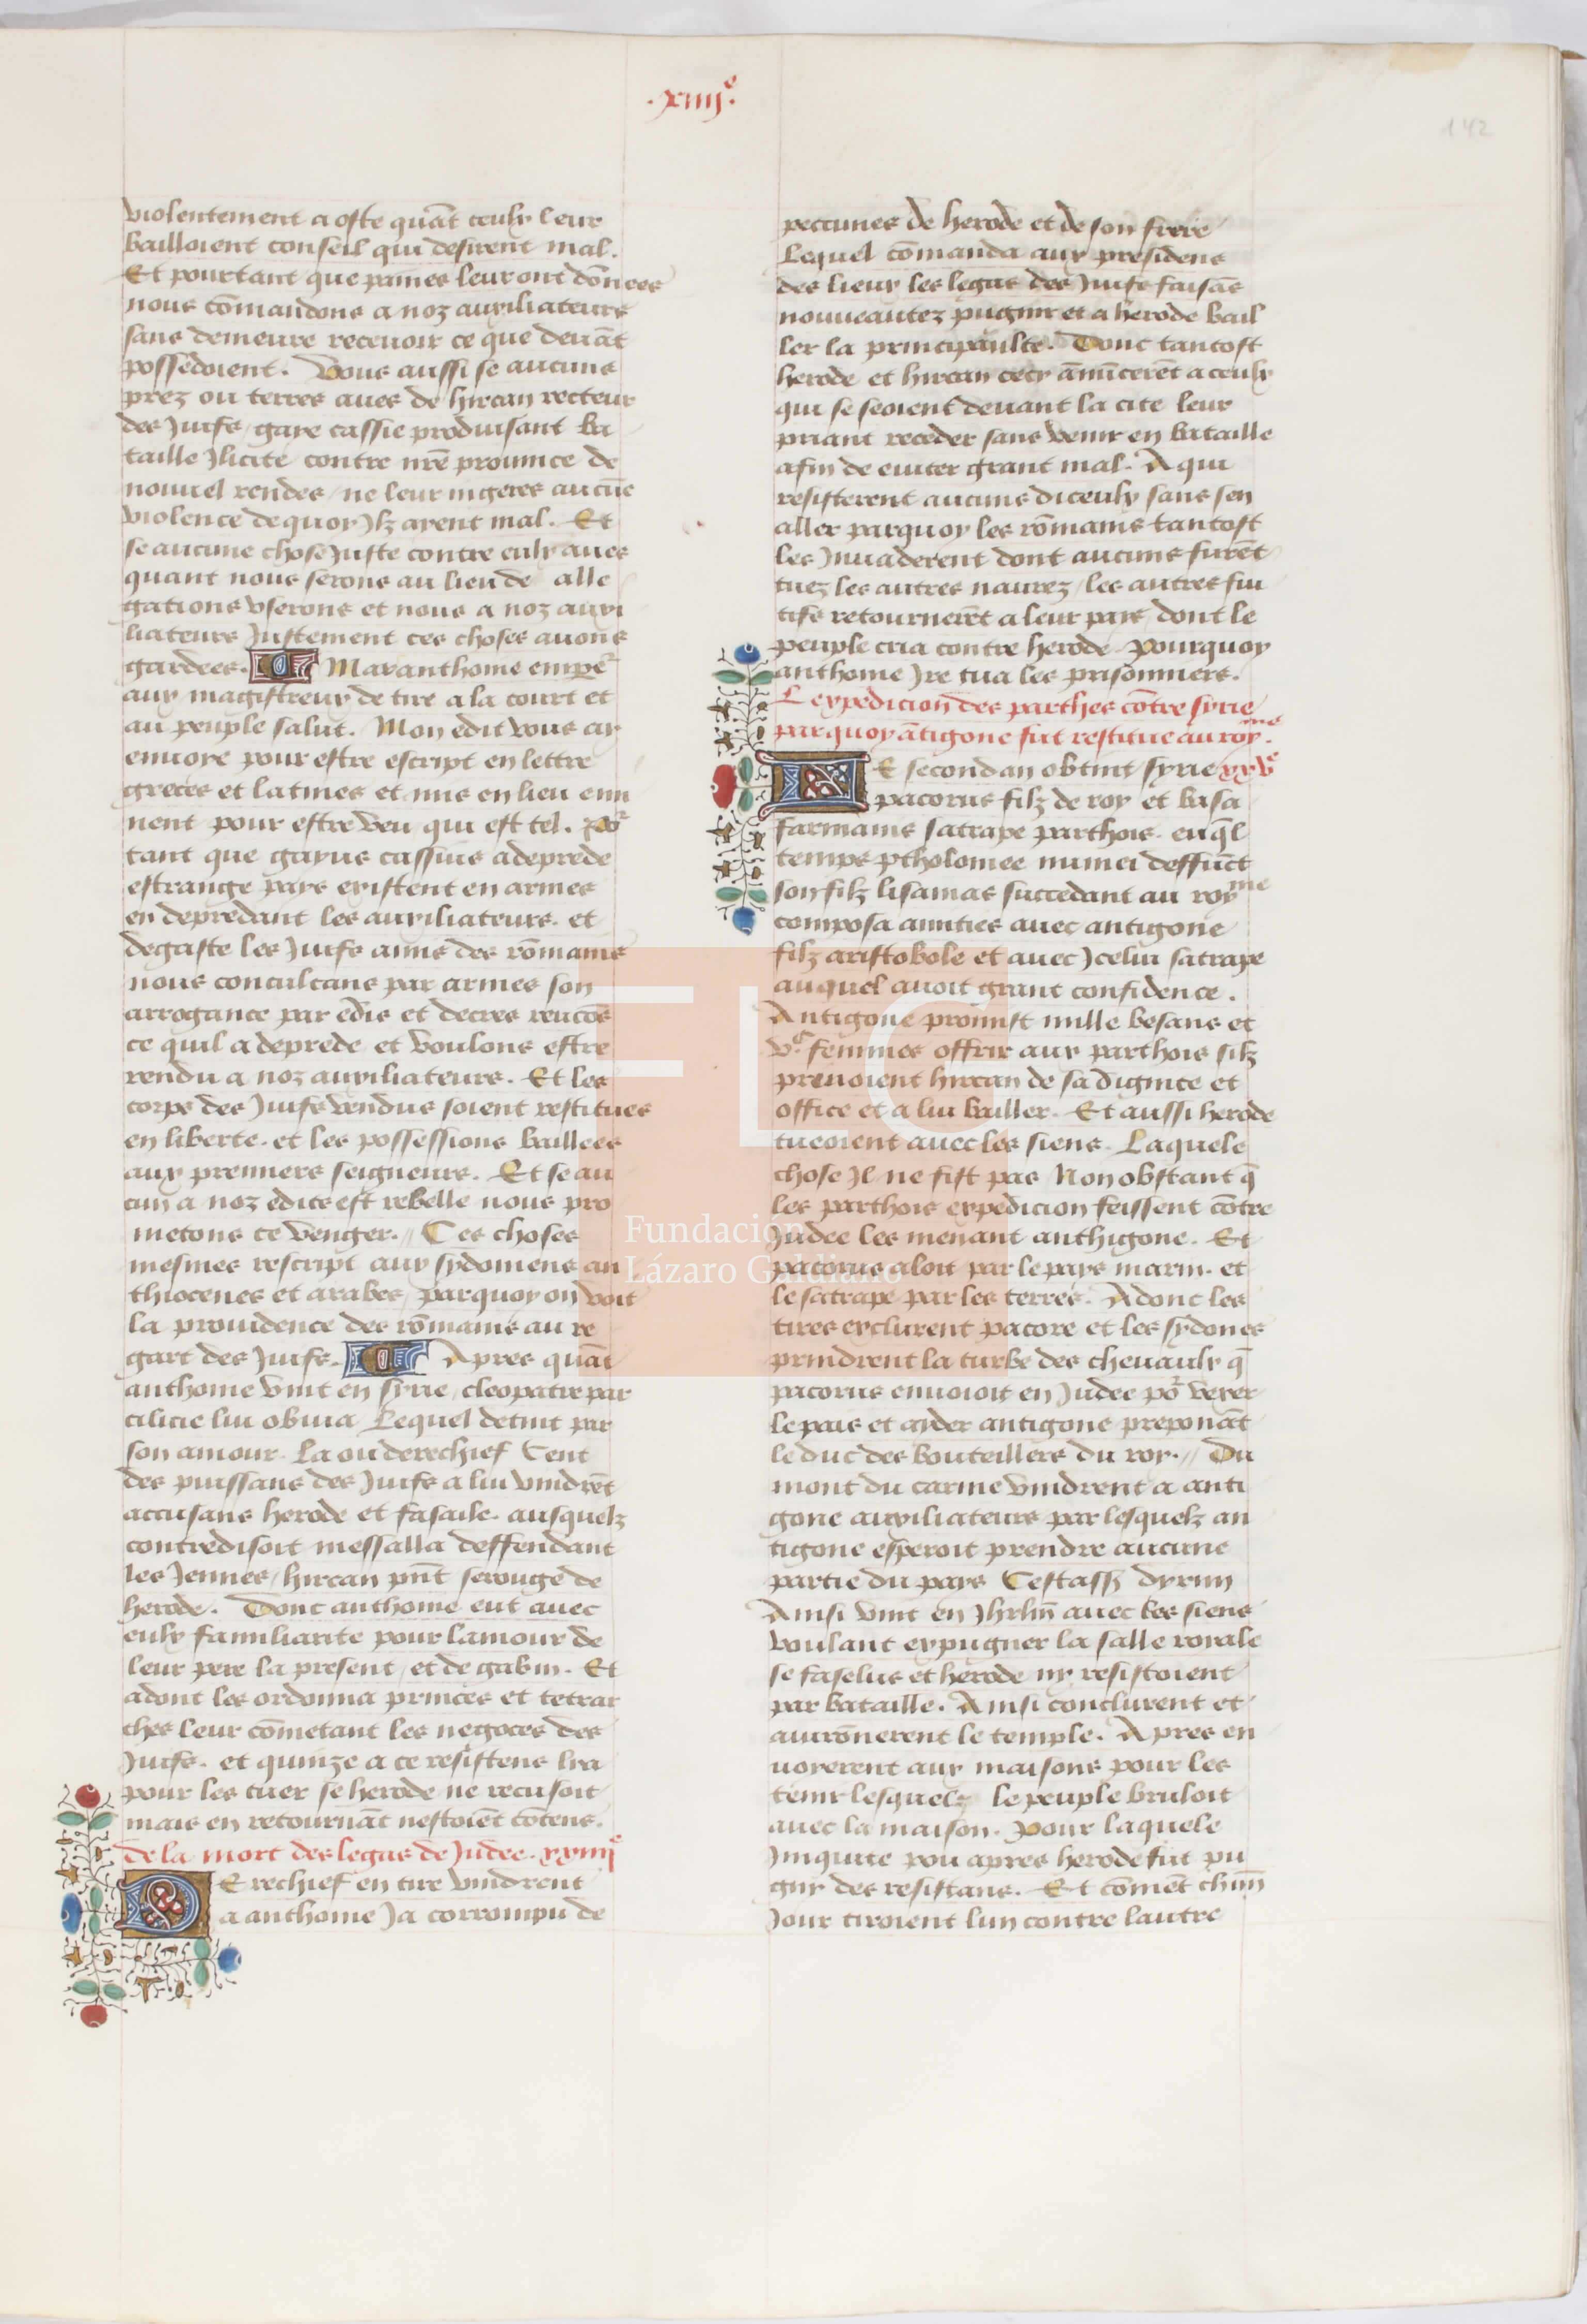 .xiiij.e
142
violentement a oste quāt ceulx leur
bailloient conseil qui desirent mal.
Et pourtant que paines leur ont dōnees
nous cōmandons a noz auxiliateurs
sans demeure recevoir ce que devāt
possedoient. Vous aussi se aucuns
prez ou terres aves de hircan recteur
des Juifs / gaye cassie produisant ba
taille Jlicite contre nr̄e province de
nouvel rendes / ne leur ingeres aucūe
violence de quoy Jlz ayent mal. Et
se aucune chose Juste contre eulx aves
quant nous serons au lieu de alle
gations userons et nous a noz auxi
liateurs Justement ces choses avons
gardees. Maranthoine empēr
aux magistreux de tire a la court et
au peuple salut. Mon edit vous ay
envoye pour estre escript en lettre
greces et latines et mis en lieu emi
nent pour estre veu qui est tel. por
tant que gayus cassius a deprede
estrange pays existent en armes
en depredant les auxiliateurs. et
degaste les Juifs amis des rōmains
nous conculcans par armes son
arrogance par edis et decres
ce quil a deprede et voulons estre
rendu a noz auxiliateurs. Et les
corps des Juifs vendus soient restitues
en liberte. et les possessions baillees
aux premiers seigneurs. Et se au
cun a noz edits est rebelle nous pro
metons ce venger. // Ces choses
mesmes rescript aux sydoniens an
thiocenes et arabes / parquoy on voit
la providence des rōmains au re
gart des Juifs. Apres quāt
anthoine vint en syrie / cleopatre par
cilicie lui obvia Lequel detint par
son amour. La ou derechief Cent
des puissans des Juifs a lui vindrēt
accusans herode et fasaile. ausquelz
contredisoit messalla deffendant
les Jennes / hircan pn̄t serouge de
herode. Donc anthoine eut avec
eulx familiarite pour lamour de
leur pere la present / et de gabin. Et
adont les ordonna princes et tetrar
ches leur cōmetant les negoces des
Juifs. et quinze a ce resistens lia
pour les tuer se herode ne recusoit
mais en retournāt nestoiēt cōtens.
De la mort des legas de Judee. xxiiije
DE rechief en tire vindrent
a anthoine Ja corrompu de
peccunes de herode et de son frere
Lequel cōmanda aux presidens
des lieux les legas des Juifs faisās
nouveautez pugnir et a herode bail
ler la principaulte. Donc tantost
herode et hircan cecy ānūcerēt a ceulx
qui se seoient devant la cite leur
priant receder sans venir en bataille
afin de eviter grant mal. A qui
resisterent aucuns diceulx sans sen
aller parquoy les rōmains tantost
les Jnvaderent dont aucuns furēt
tuez les autres naurez / les autres fui
tifs retournerēt a leur pais dont le
peuple cria contre herode. Pourquoy
anthoine Jre tua les prisonniers.
Lexpedicion des parthes cōtre syrie
parquoy ātigone fut restitue au royme.
LE second an obtint syrie xxve
pacorus filz de roy et basa
farmanis satrape parthois. en q̄l
temps ptholomee minnei deffūct
son filz lisamas succedant au royme
composa amities avec antigone
filz aristobole et avec Jcelui satrape
auquel avoit grant confidence.
Antigone promist mille besans et
vc. femmes offrir aux parthois silz
prenoient hircan de sa dignite et
office et a lui bailler. Et aussi herode
tueoient avec les siens. Laquele
chose Jl ne fist pas Non obstant q̄
les parthois expedicion feissent cōtre
Judee les menant anthigone. Et
pacorus aloit par le pays marin. et
le satrape par les terres. Adonc les
tires exclurent pacore et les sydones
prindrent la turbe des chevaulx q̄
pacorus envoioit en Judee por veher
le pais et ayder antigone preponāt
le duc des bouteillers du roy. // Du
mont du carme vindrent a anti
gone auxiliateurs par lesquelz an
tigone esperoit prendre aucune
partie du pays Cestass. drymi
Ainsi vint en Jhrlm̄ avec les siens
voulant expugner la salle royale
se faselus et herode ny resistoient
par bataille. Ainsi conclurent et
auirōnerent le temple. Apres en
voyerent aux maisons pour les
tenir lesquelz le peuple bruloit
avec la maison. Pour laquele
Jniquite pou apres herode fut pu
gny des resistans. Et cōmēt chūn
Jour tiroient lun contre lautre
FLG
Fundación
Lázaro Galdiano